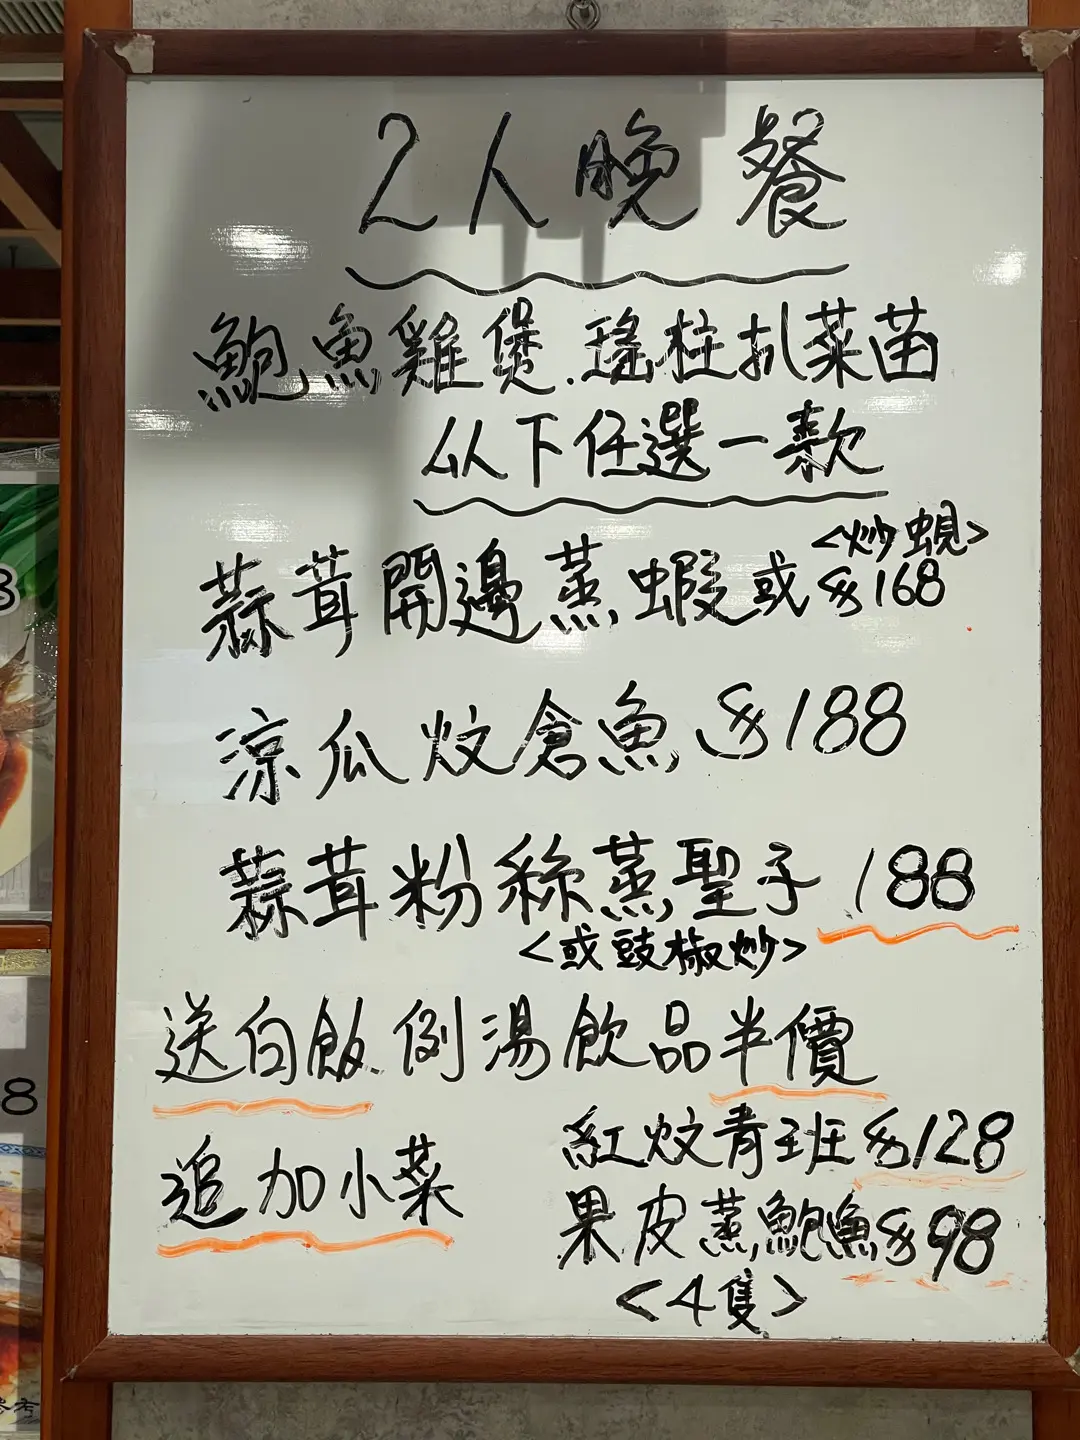 2人晚餐
鮑魚雞煲.瑤柱扒菜苗
以下任選一款
蒜茸開邊蒸蝦或<炒蜆>$168
涼瓜炆倉魚 $188
蒜茸粉絲蒸聖子 188
<或豉椒炒>
送白飯.例湯飲品半價
追加小菜
紅炆青班$128
果皮蒸鮑魚$98
<4隻>
3
8
參考